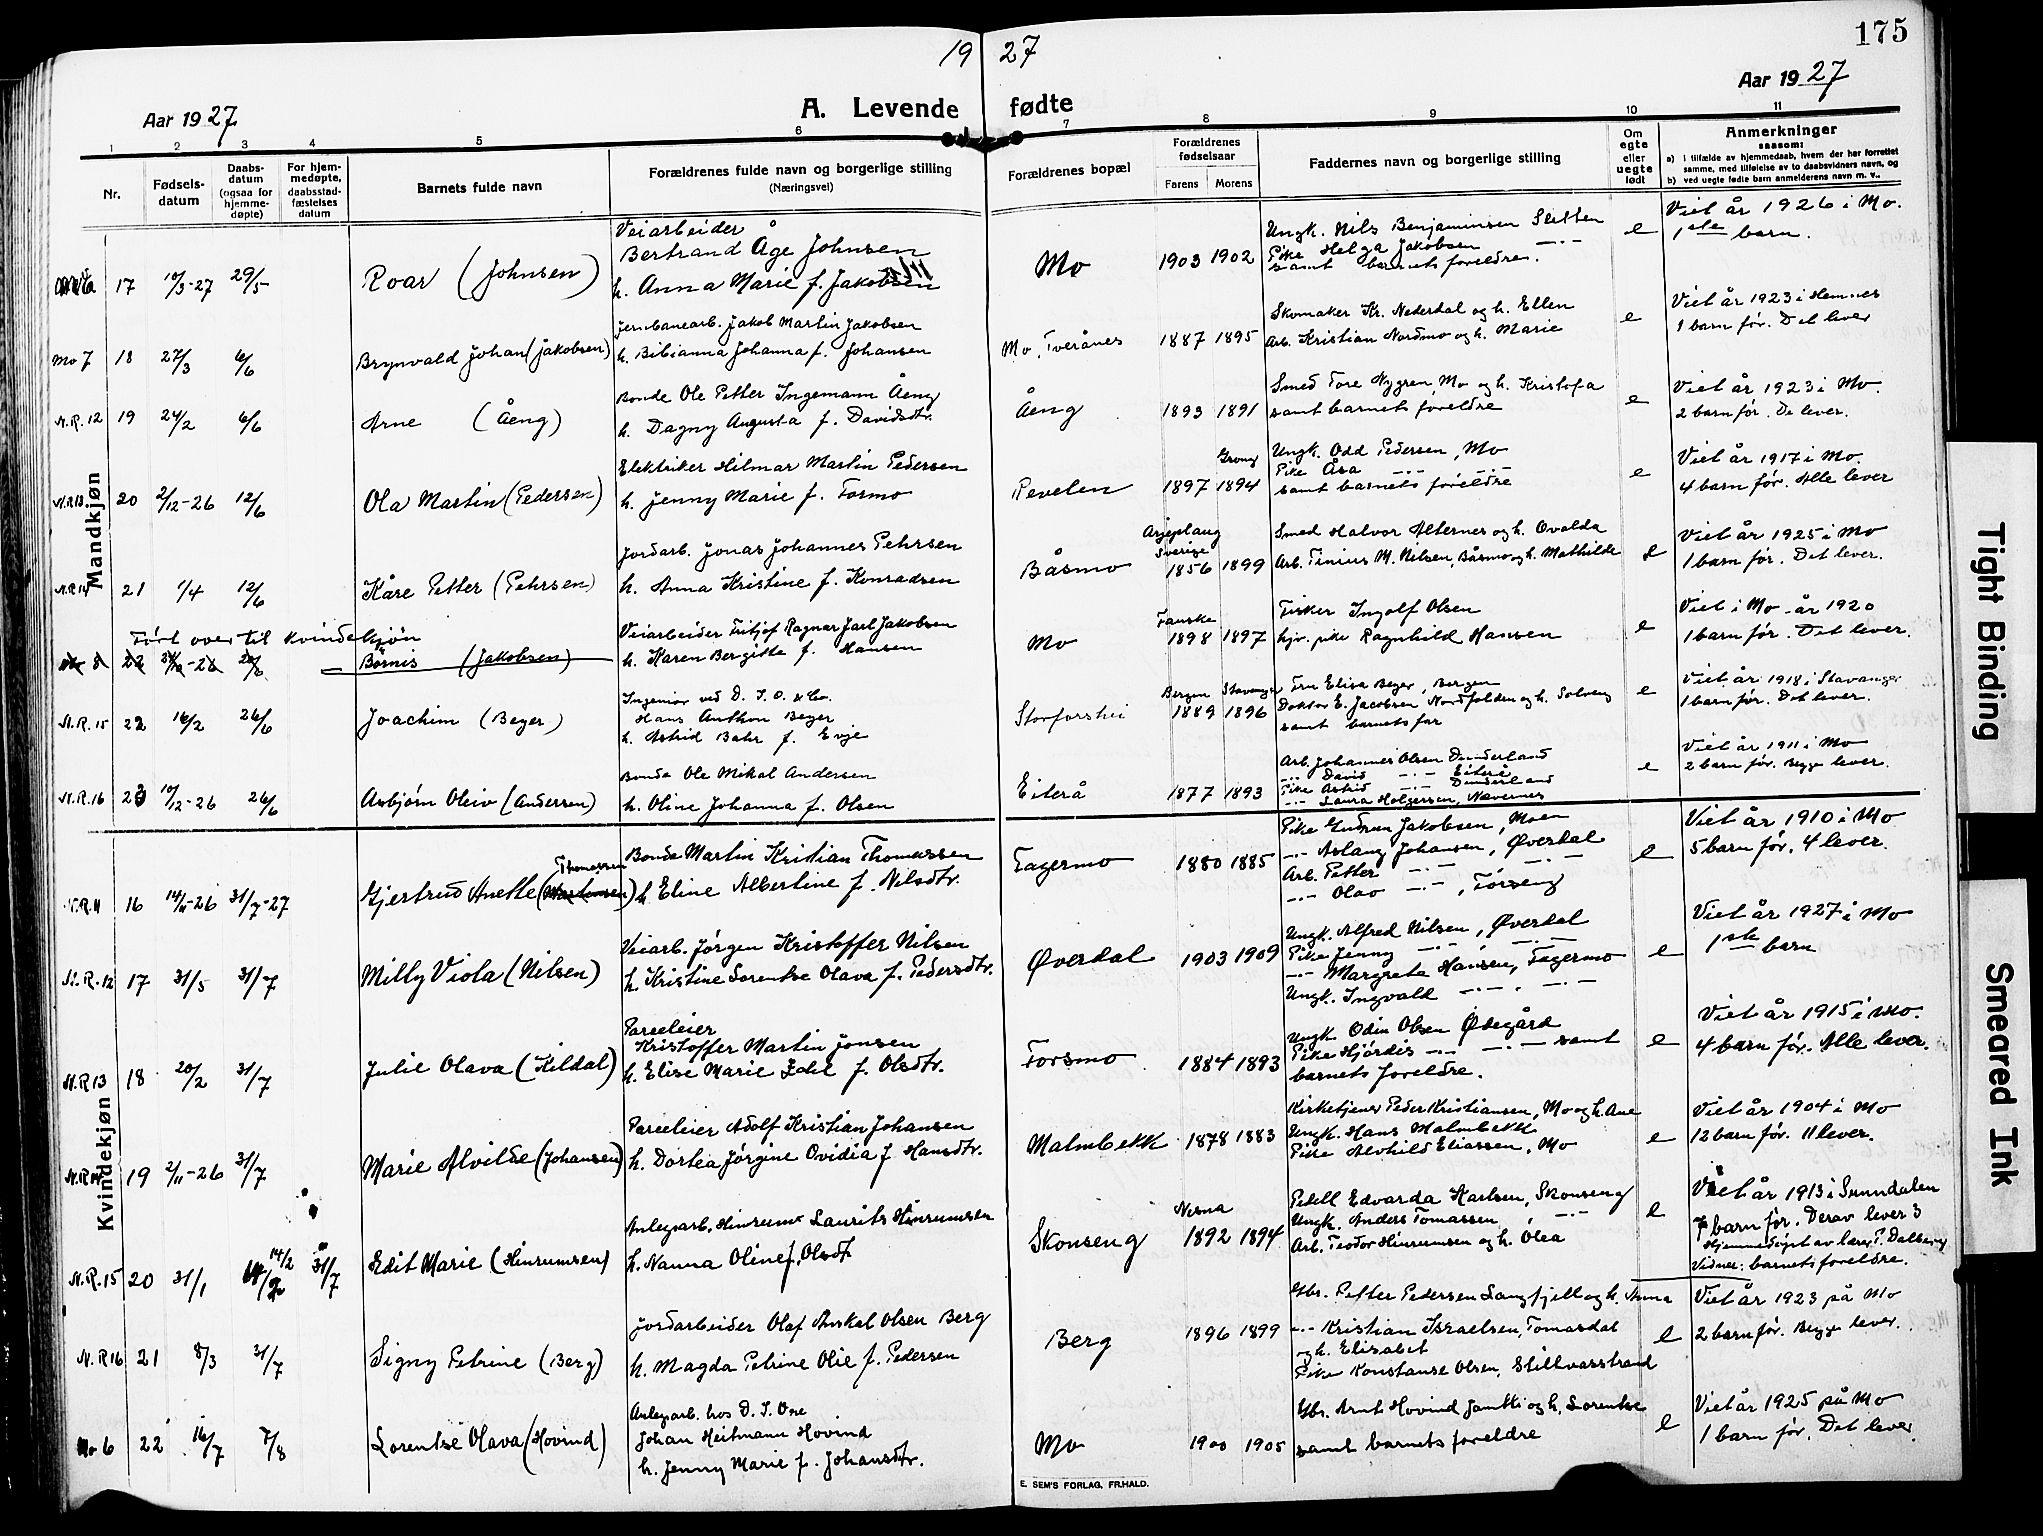 175
19 27
Aar 1927
A. Levende fødte
Aar 1927
1 2 3 4 5 6 7 8 9 10 11
Nr.
Fødsels-
datum
Daabs-
datum
(ogsaa for
hjemme-
døpte)
For hjem-
medøpte,
daabsstad-
fæstelses
datum
Barnets fulde navn
Forældrenes fulde navn og borgerlige stilling
(Næringsvei)
Forældrenes bopæl
Forældrenes
fødselsaar
Farens Morens
Faddernes navn og borgerlige stilling
Om
egte
eller
uegte
født
Anmerkninger
saasom:
a) i tilfælde av hjemmedaab, hvem der har forrettet
samme, med tilføielse av to daabsvidners navn, og
b) ved uegte fødte barn anmelderens navn m. v..
Mandkjøn
17 10/3-27 29/5 Roar (Johnsen)
Veiarbeider
Bertrand Åge Johnsen
h. Anna Marie f. Jakobsen
Mo 1903 1902
Ungk. Nils Benjaminsen Sletten
Pike Helga Jakobsen —·—
samt barnets foreldre.
e
Viet år 1926 i Mo.
1ste barn.
Mo 7 18 27/3 6/6 Brynvald Johan (Jakobsen)
Jernbanearb. Jakob Martin Jakobsen
h. Bibianna Johanna f. Johansen
Mo, Tverånes 1887 1895
Skomaker Kr. Nederdal og h. Ellen
Arb. Kristian Nordmo og h. Marie
e
Viet år 1923 i Hemnes
1 barn før. Det lever
N.R. 12 19 24/2 6/6 Arne (Åeng)
Bonde Ole Petter Ingemann Åeng
h. Dagny Augusta f. Davidsdtr.
Åeng 1893 1891
Smed Tore Nygren Mo og h. Kristofa
samt barnets foreldre
e
Viet år 1923 i Mo.
2 barn før. De lever.
N.R.13 20 2/12-26 12/6 Ola Martin (Pedersen)
Elektriker Hilmar Martin Pedersen
h. Jenny Marie f. Formo
Revelen 1897 Grong 1894
Ungk. Odd Pedersen, Mo
Pike Åsa —·— —·—
samt barnets foreldre
e
Viet år 1917 i Mo.
4 barn før. Alle lever
N.R.14 21 1/4 12/6 Kåre Petter (Pehrsen)
Jordarb. Jonas Johannes Pehrsen
h. Anna Kristine f. Konradsen
Båsmo
Arjeplaug
Sverige
1856 1899
Smed Halvor Alternes og h. Ovalda
Arb. Tinius M. Nilsen, Båsmo og h. Mathilde
e
Viet år 1925 i Mo
1 barn før. Det lever.
Ført over til kvindekjøn
8 22 20/6 Børnis (Jakobsen)
Veiarbeider Fritjof Ragnar Jarl Jakobsen
h. Karen Bergitte f. Hansen
Mo Fauske 1898 1897
Fisker Ingolf Olsen
hjv. pike Ragnhild Hansen
e
Viet i Mo år 1920
1 barn før. Det lever.
N.R. 15 22 16/2 26/6 Joachim (Beyer)
Ingeniør ved D. I. O. & Co.
Hans Anthon Beyer
h. Astrid Bahr f. Evje
Storforshei Bergen 1889 Stavanger 1896
Fru Elisa Beyer, Bergen
Doktor E. Jacobsen Nordfolden og h. Solveig
samt barnets far
e
Viet år 1918 i Stavanger
1 barn før. Det lever.
N.R. 16 23 10/12-26 26/6 Asbjørn Oleiv (Andersen)
Bonde Ole Mikal Andersen
h. Oline Johanna f. Olsen
Eiterå 1877 1893
Arb. Johannes Olsen Dunderland
—·— David —·— Eiterå
Pike Astrid —·— Dunderland
—·— Laura Holgersen, Nævernes
e
Viet år 1911 i Mo
2 barn før. Begge lever.
Kvindekjøn
N.R. 11 16 14/11-26 31/7-27 Gjertrud Anette (Thomassen)
Bonde Martin Kristian Thomassen
h Eline Albertine f. Nilsdtr.
Fagermo 1880 1885
Pike Gudrun Jakobsen, Moen
—·— Aslaug Johansen, Øverdal
Arb. Petter —·— —·—
—·— Olav —·—, Førseng
e
Viet år 1910 i Mo
5 barn før, 4 lever.
N.R.12 17 31/5 31/7 Milly Viola (Nilsen)
Veiarb. Jørgen Kristoffer Nilsen
h. Kristine Lorentse Olava f. Pedersdtr.
Øverdal 1903 1909
Ungk. Alfred Nilsen, Øverdal
Pike Jenny —·— —·—
—·— Margrete Hansen, Fagermo
Ungk. Ingvald —·— —·—
e
Viet år 1927 i Mo
1ste barn
N.R 13 18 20/2 31/7 Julie Olava (Kildal)
Parseleier
Kristoffer Martin Jonsen
h. Elise Marie Edel f. Olsdtr.
Forsmo 1884 1893
Ungk Odin Olsen Ødegård
Pike Hjørdis —·— —·— samt
barnets foreldre.
e
Viet år 1915 i Mo.
4 barn før. Alle lever.
N.R 14 19 2/11-26 31/7 Marie Alvilde (Johansen)
Parseleier Adolf Kristian Johansen
h. Dortea Jørgine Ovidia f. Hansdtr.
Malmbekk 1878 1883
Kirketjener Peder Kristiansen, Mo og h. Ane
Ungk. Hans Malmbekk
Pike Alvhild Eliassen, Mo
e
Viet år 1904 i Mo
12 barn før. 11 lever.
N.R. 15 20 31/1 14/2 31/7 Edit Marie (Hinrumsen)
Anlegsarb. Hinrum Laurits Hinrumsen
h. Nanna Oline f. Olsdt
Skonseng Nesna 1892 1894
Pdell Edvarda Karlsen, Skonseng
Ungk. Anders Tomassen, —·—
Arb. Teodor Hinrumsen og h. Olea
e
Viet år 1913 i Sunndalen
7 barn før. Derav lever 3
Hjemmedøpt av lærer P. Dalberg
Vidner: barnets foreldre.
N.R 16 21 8/3 31/7 Signy Petrine (Berg)
Jordarbeider Olaf Anskal Olsen Berg
h. Magda Petrine Olie f. Pedersen
Berg 1896 1899
Gbr. Petter Pedersen Langfjell og h. Anna
—·— Kristian Israelsen, Tomasdal
og h. Elisabet
Pike Konstanse Olsen, Stillvasstrand
e
Viet år 1923 på Mo
2 barn før. Begge lever.
Mo 6 22 16/7 7/8 Lorentse Olava (Hovind)
Anlegsarb. hos D. I. Ore
Johan Heitmann Hovind
h. Jenny Marie f. Johansdtr.
Mo 1900 1905
Gbr. Arnt Hovind Jamtli og h. Lorentse
samt barnets foreldre
e
Viet år 1925 på Mo
1 barn før. Det lever
E. SEM'S FORLAG, FR.HALD.
Tight Binding
Smeared Ink